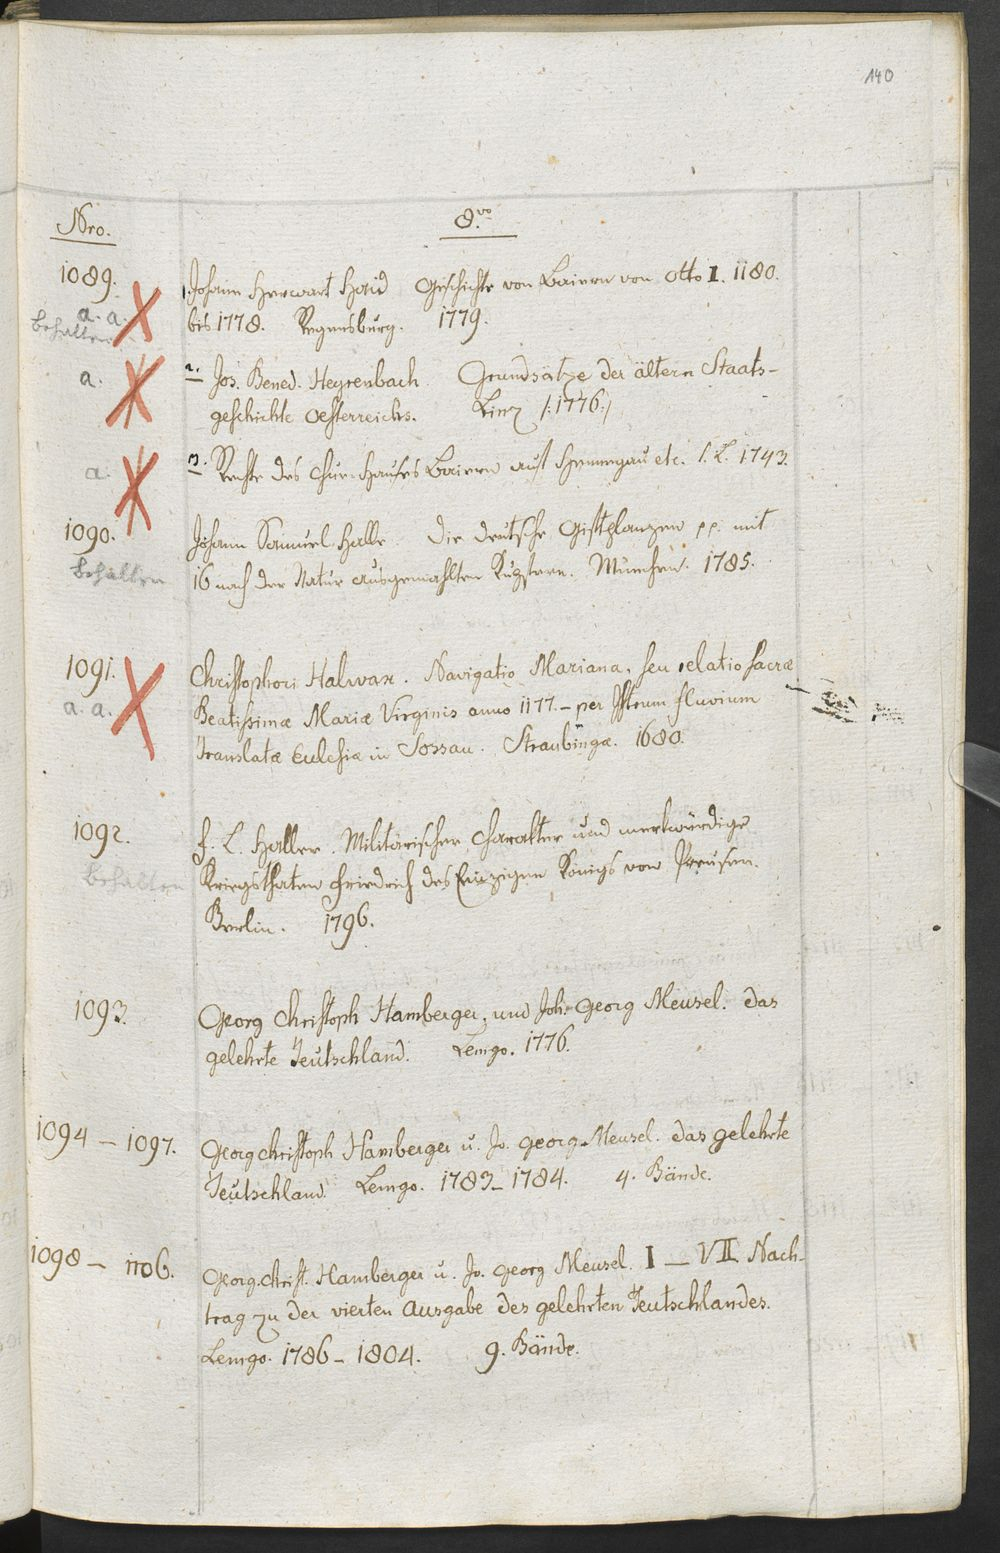 140
Nro.
8.vo
1089.
a. a.
behalten
1. Johann Herwart Haid Geschichte von Baiern von Otto I. 1180.
bis 1778. Regensburg. 1779.
a.
2. Jos. Bened. Heyrenbach. Grundsätze der ältern Staats-
geschichte Oesterreichs. Linz /:1776:/
a.
3. Rechte des Chur-Hauses Baiern auf Hennegau etc. s. L. 1743.
1090.
behalten
Johann Samuel Halle. Die deutsche Giftplanzen pp. mit
16 nach der Natur ausgemahlten Kupfern. München. 1785.
1091.
a. a.
Christophori Halwax. Navigatio Mariana, seu relatio sacræ
Beatissimæ Mariæ Virginis anno 1177. - per Istrum fluvium
translatæ Eclesiæ in Sossau. Straubingæ. 1680.
1092.
behalten
F. L. Haller. Militärischer Charakter und merkwürdige
Kriegsthaten Friedrich des Einzigen Königs von Preusen.
Berlin. 1796.
1093.
Georg Christoph Hamberger, und Joh. Georg Meusel. das
gelehrte Teutschland. Lemgo. 1776.
1094 - 1097.
Georg Christoph Hamberger u. Jo. Georg Meusel. das gelehrte
Teutschland. Lemgo. 1783 - 1784. 4. Bände.
1098 - 1106.
Georg. Christ. Hamberger u. Jo. Georg Meusel. I - VII Nach-
trag zu der vierten Ausgabe des gelehrten Teutschlandes.
Lemgo. 1786 - 1804. 9. Bände.